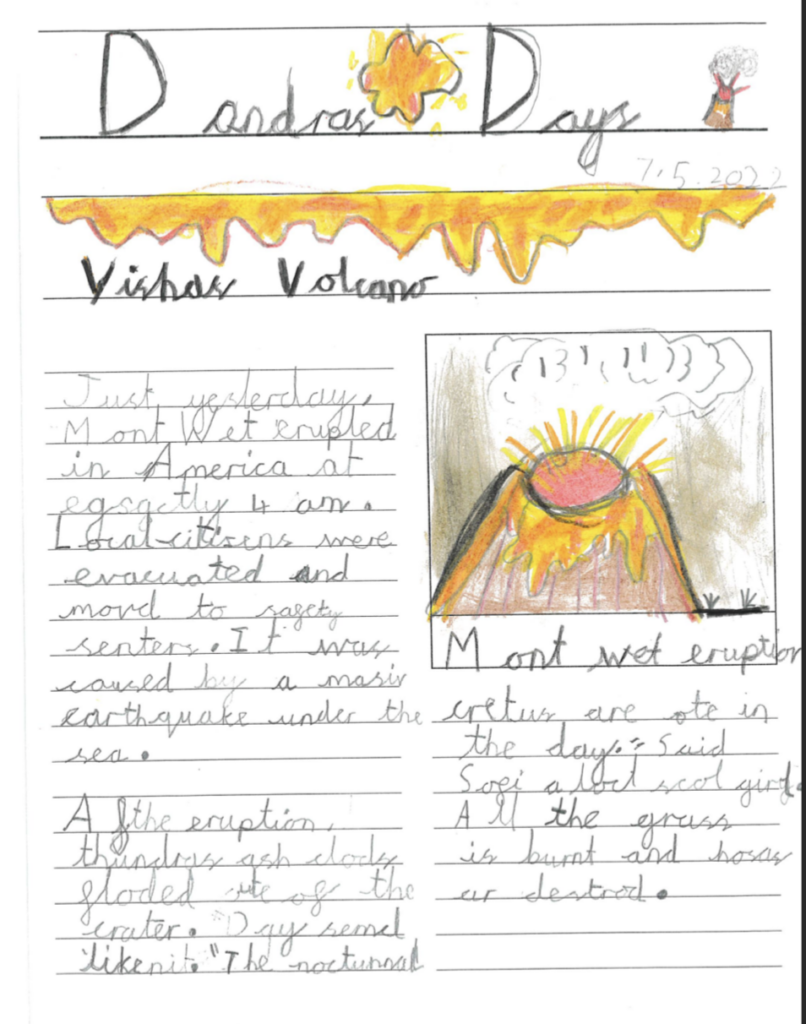 Dandras Days
7.5.2022
Vishas Volcano
Just yesterday,
Mont Wet erupted
in America at
egsgctly 4 am.
Local citisens were
evacuated and
movd to sagety
senters. It was
caused by a masiv
earthquake under the
sea.
A fthe eruption,
thundras ash clods
floded ute of the
crater. "Day semd
like nit. "The nocturnal
Mont wet eruption
cretus are ote in
the day." Said
Sogi a locl scol girl.
All the grass
is burnt and hosas
ar destrod.